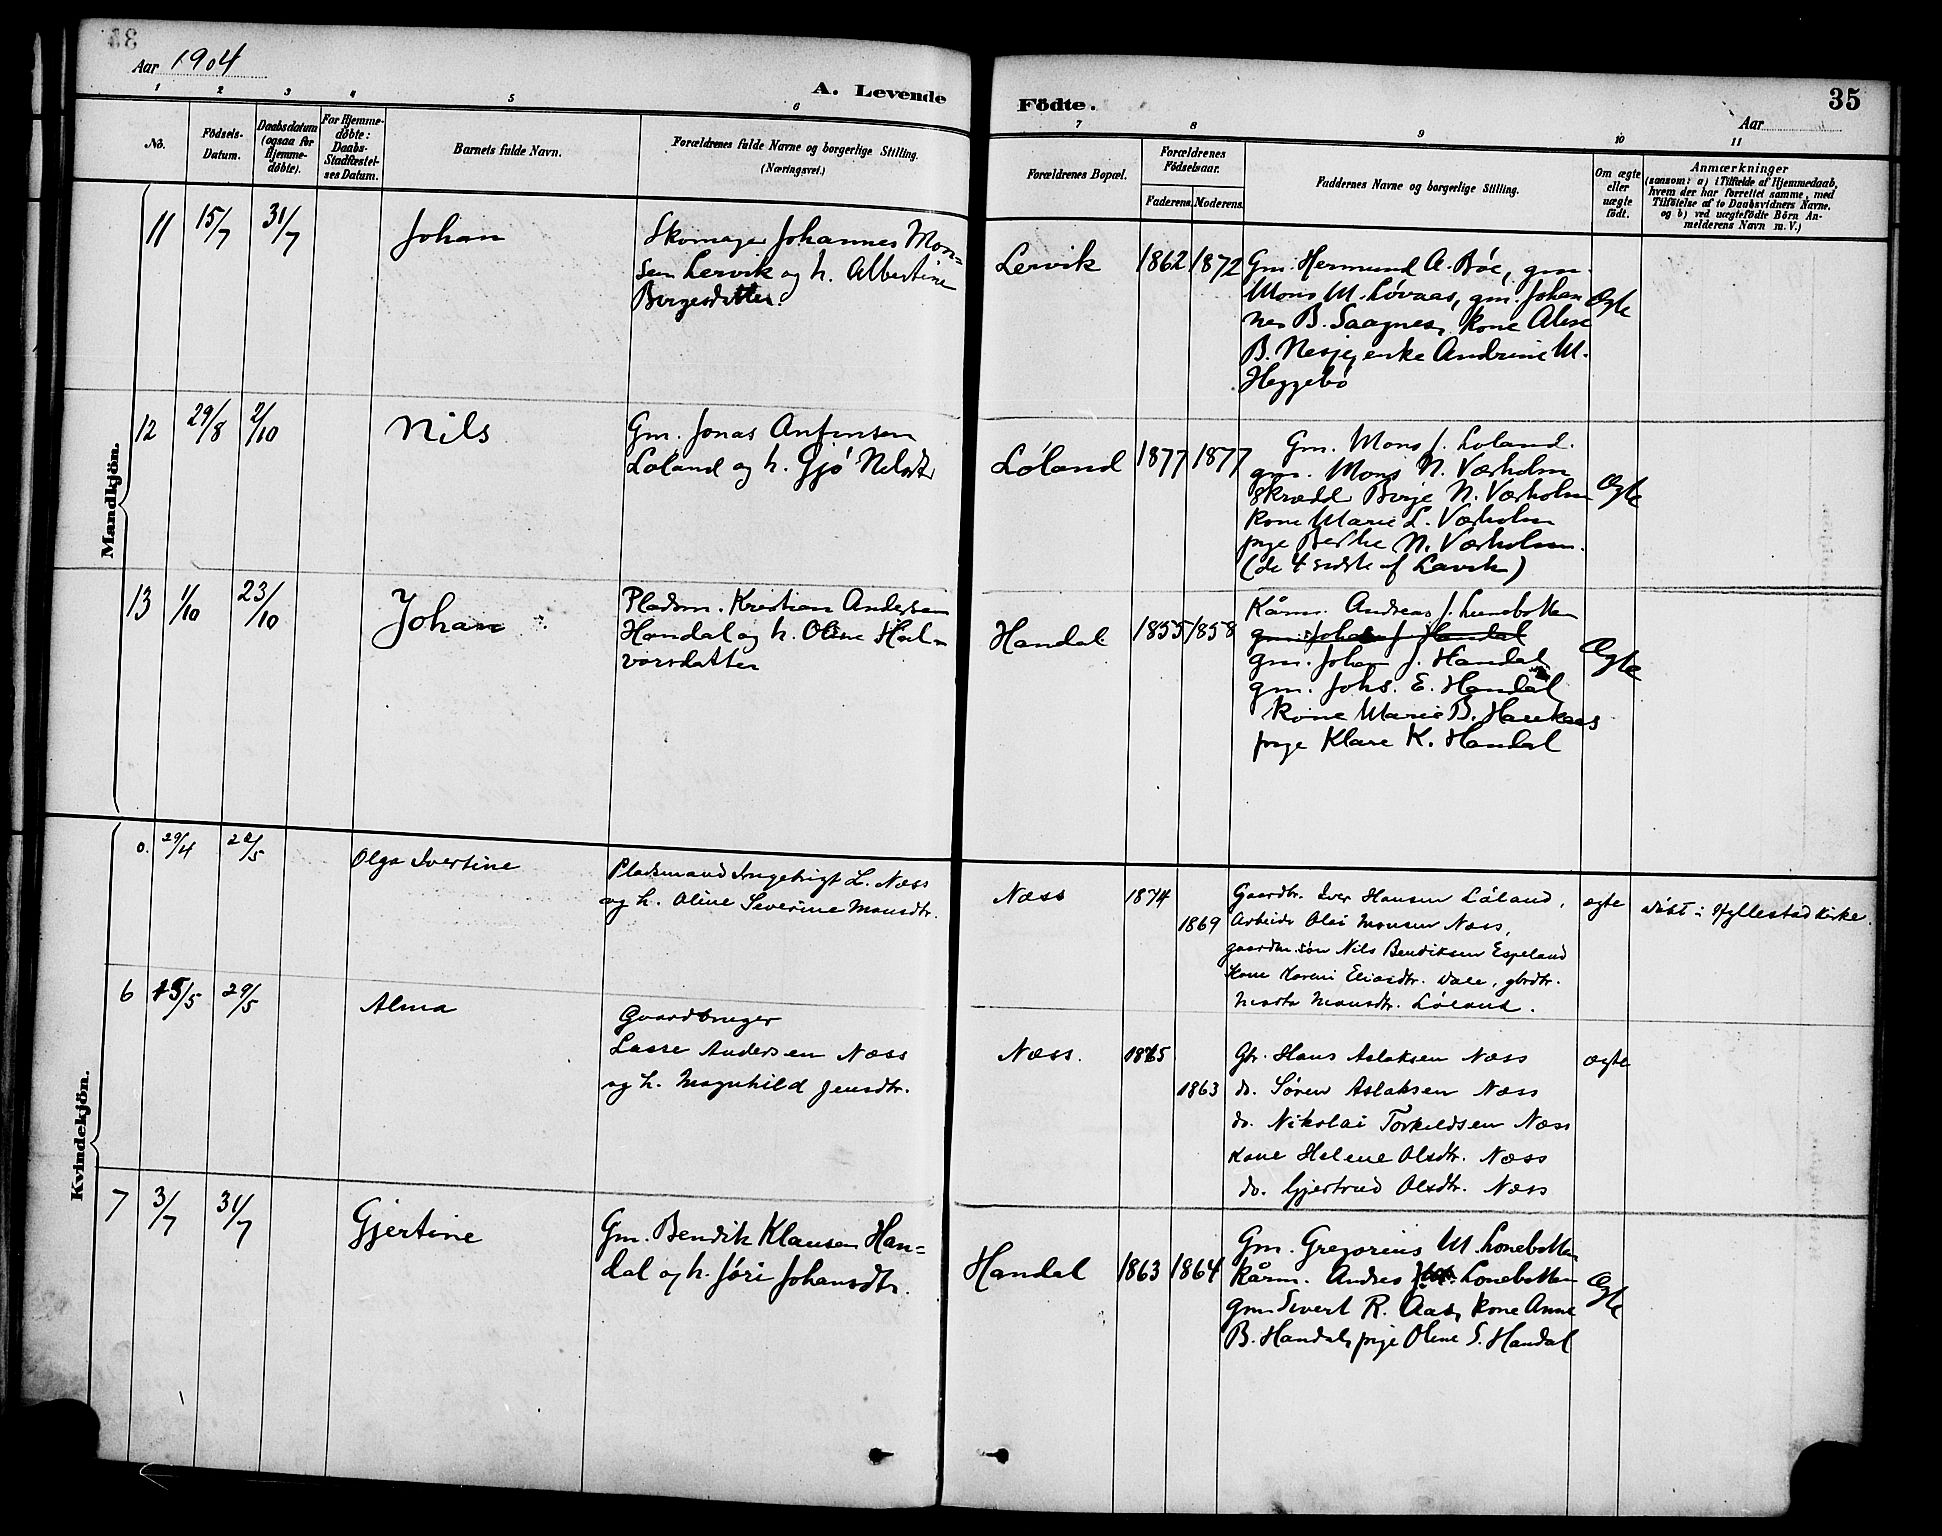 Aar 1904
A. Levende
Födte.
35
Aar
1 2 3 4 5 6 7 8 9 10 11
No.
Födsels-
Datum.
Daabsdatum
(ogsaa for
Hjemme-
døbte).
For Hjemme-
døbte:
Daabs-
Stadfæstel-
ses Datum.
Barnets fulde Navn.
Forældrenes fulde Navne og borgerlige Stilling.
(Næringsvei.)
Forældrenes Bopæl.
Forældrenes
Fødselsaar.
Faderens. Moderens.
Faddernes Navne og borgerlige Stilling.
Om ægte
eller
uægte
født.
Anmærkninger
(saasom: a) i Tilfælde af Hjemmedaab,
hvem der har forrettet samme, med
Tilføielse af to Daabsvidners Navne.
og b) ved uægtefødte Börn An-
melderens Navn m. V.)
Mandkjön.
11 15/7 31/7 Johan
Skomager Johannes Mon-
sen Lervik og h. Albertine
Borgesdatter
Lervik 1862 1872
Gm. Hermund A. Böe, gm.
Mons M. Lövaas, gm. Johan
nes B. Saagnes, kone Alise
B. Nesje, enke Andrine M.
Heggebö
Ægte
12 29/8 2/10 Nils
Gm. Jonas Anfinsen
Løland og h. Gjø Nelsdtr
Löland 1877 1877
Gm. Mons J. Loland.
gm. Mons N. Værholm
skrædd. Borje N. Værholm
kone Marie L. Værholm
pige Berthe N. Værholm.
(de 4 sidste af Lavik)
Ægte
13 1/10 23/10 Johan
Pladsm. Kristian Andersen
Handal og h. Oline Hal-
vorsdatter
Handal 1855 1858
Kårm. Andreas J. Lunebotten
gm. Johan J. Handal
gm. Johan J. Handal
gm. Johs. E. Handal
kone Marie B. Haukaas
pige Klare K. Handal
Ægte
Kvindekjön.
29/4 22/5 Olga Ivertine
Pladsmand Ingebrigt L. Næss
og h. Oline Severine Monsdtr.
Næss 1874
1869
Gaardbr. Iver Hansen Löland,
Arbeider Olai Monsen Næss,
gaardm.søn Nils Bendiksen Espeland
Kone Kareni Eliasdtr. Dale, gbrdtr.
Marta Monsdtr. Löland.
ægte
döbt i Hyllestad Kirke.
6 15/5 29/5 Alma
Gaardbruger
Lasse Andersen Næss
og h. Magnhild Jensdtr.
Næss. 1865
1863
Gbr. Hans Aslaksen Næss
do. Søren Aslaksen Næss
do. Nikolai Torkeldsen Næss
Kone Helene Olsdtr. Næss
do. Gjertrud Olsdtr. Næss
ægte
7 3/7 31/7 Gjertine
Gm. Bendik Klausen Han-
dal og h. Jøri Johansdtr.
Handal 1863 1864
Gm. Gregorius M. Lonebotten
kårm. Andreas Lonebotten
gm. Sivert R. Aas, kone Anne
B. Handal, pige Oline S. Handal
Ægte